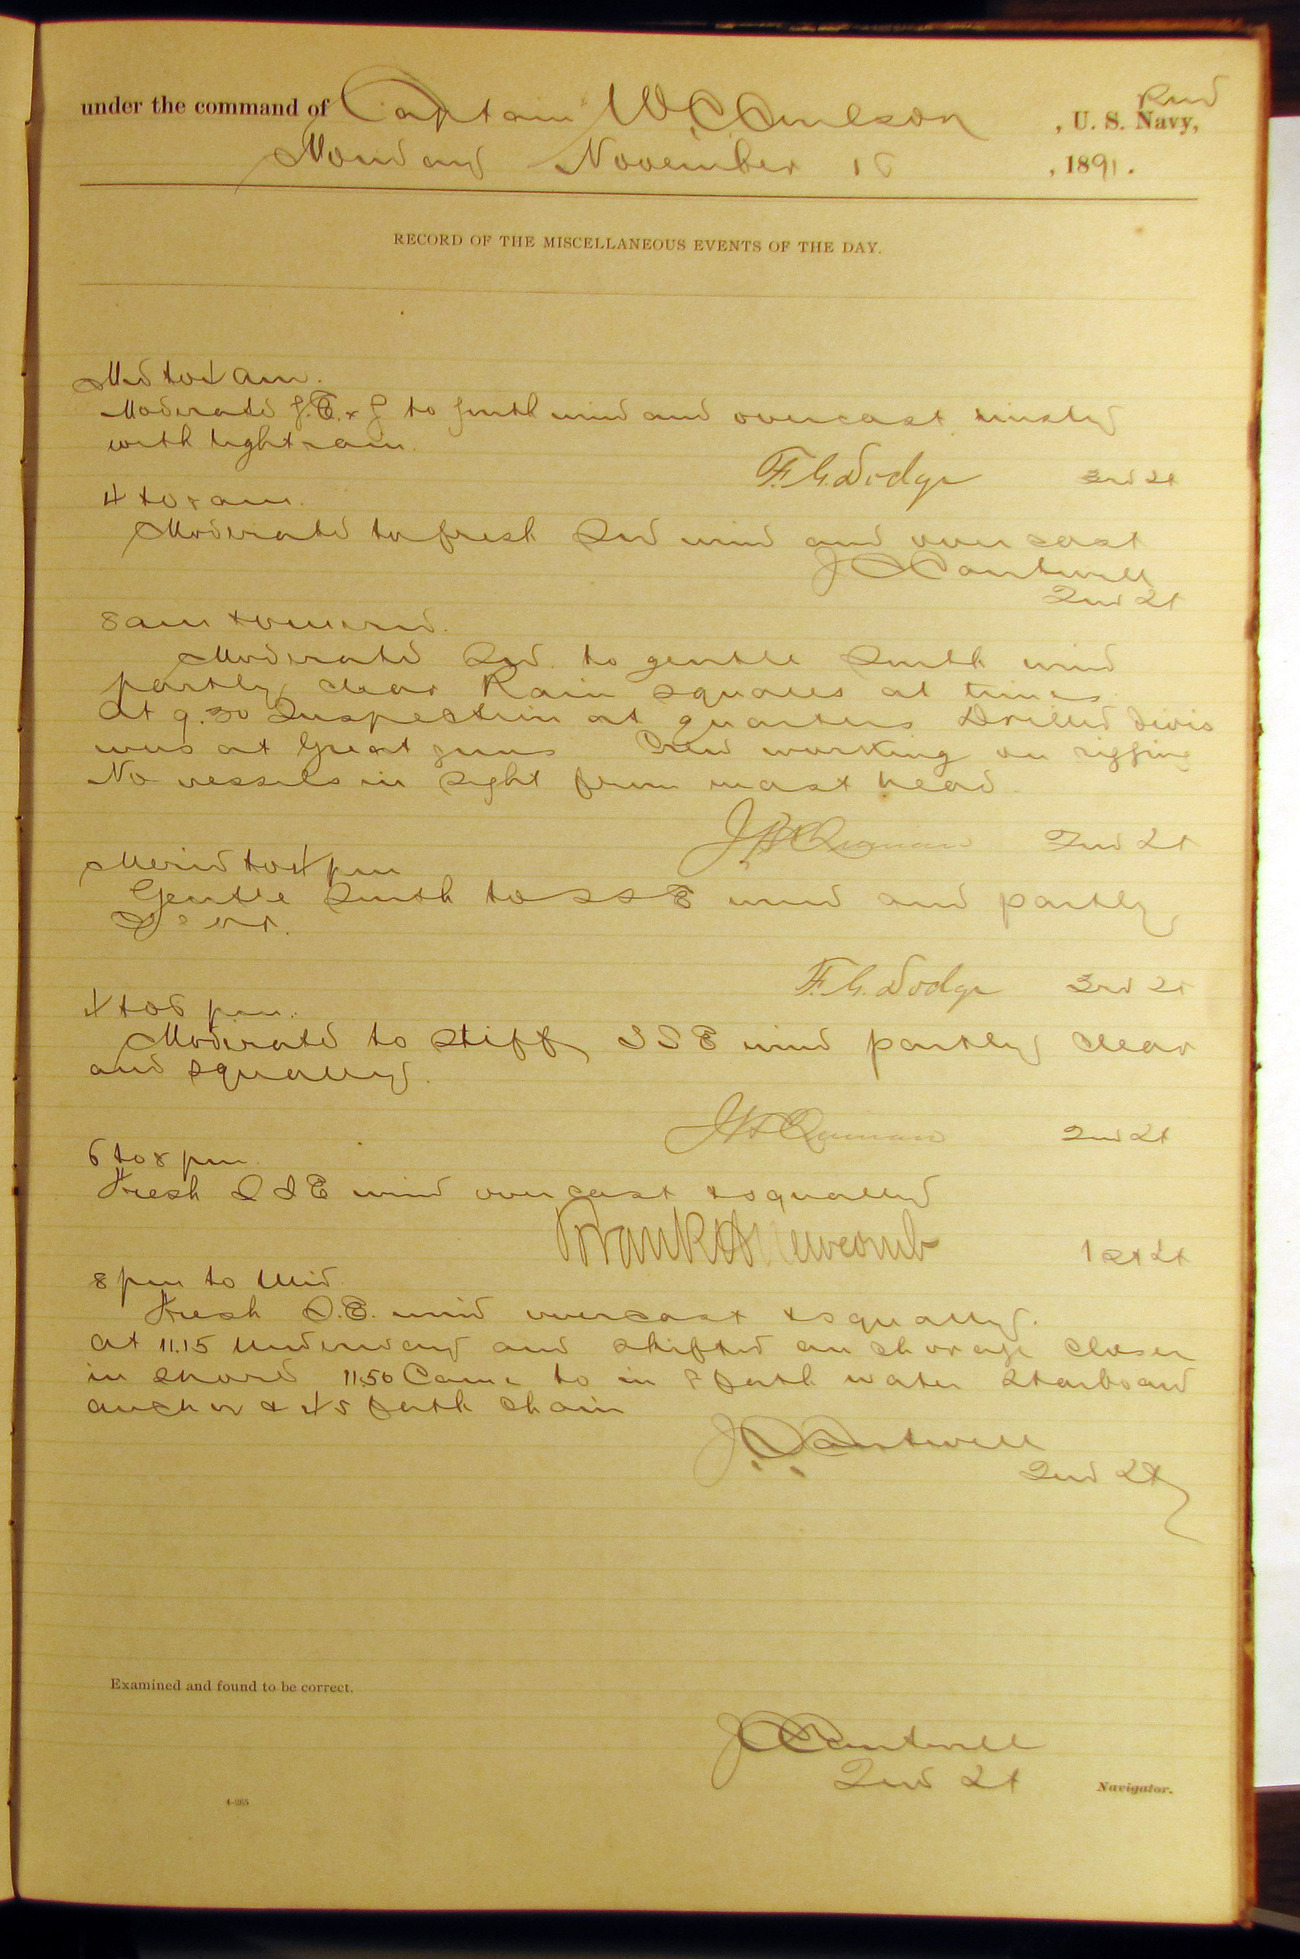 under the command of Captain W. C. Coulson, U. S. Navy, Rev
Monday November 16, 1891.
RECORD OF THE MISCELLANEOUS EVENTS OF THE DAY.
Mid to 4 am.
Moderate S.E. & S to South wind and overcast, misty
with light rain.
F. G. Dodge 3rd Lt
4 to 8 am.
Moderate to fresh wind and overcast
J C Cantwell
2nd Lt
8 am to merid.
Moderate to gentle South wind
partly clear Rain squalls at times
At 9.30 Inspection at quarters Drilled divis
ions at Great guns Crew working on rigging
No vessels in sight from mast head.
J. H. Quinan 2nd Lt
Merid to 4 pm
Gentle South to SSE wind and partly
F. G. Dodge 3rd Lt
4 to 6 pm.
Moderate to stiff SSE wind partly clear
and squally.
J H Quinan 2nd Lt
6 to 8 pm
Fresh SSE wind overcast & squally
Frank H Newcomb 1st Lt
8 pm to Mid.
Fresh S.E. wind overcast & squally.
At 11.15 Underway and shifted anchorage closer
in shore 11.50 Came to in 8 fath water Starboard
anchor & 45 fath chain
J. C. Cantwell
2nd Lt
Examined and found to be correct.
J C Cantwell
2nd Lt Navigator.
4-265